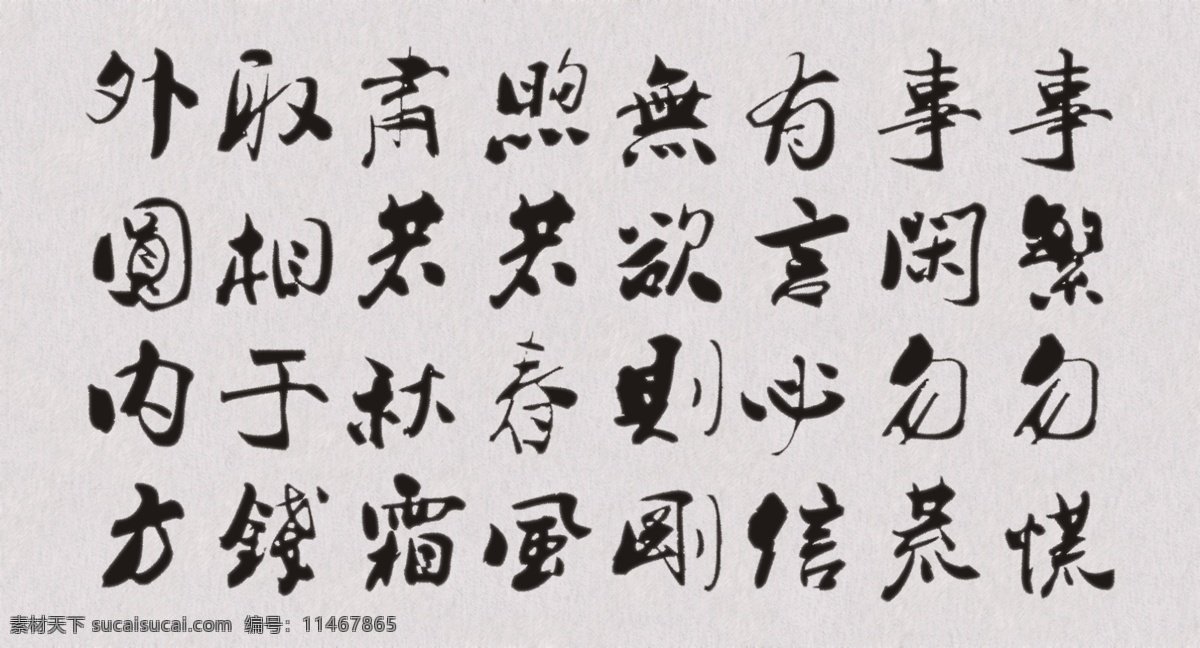 事繁勿慌
事閑勿荒
有言必信
無欲則剛
煦若春風
肅若秋霜
取相于錢
外圓内方
素材天下 sucaisucai.com 编号：11467865